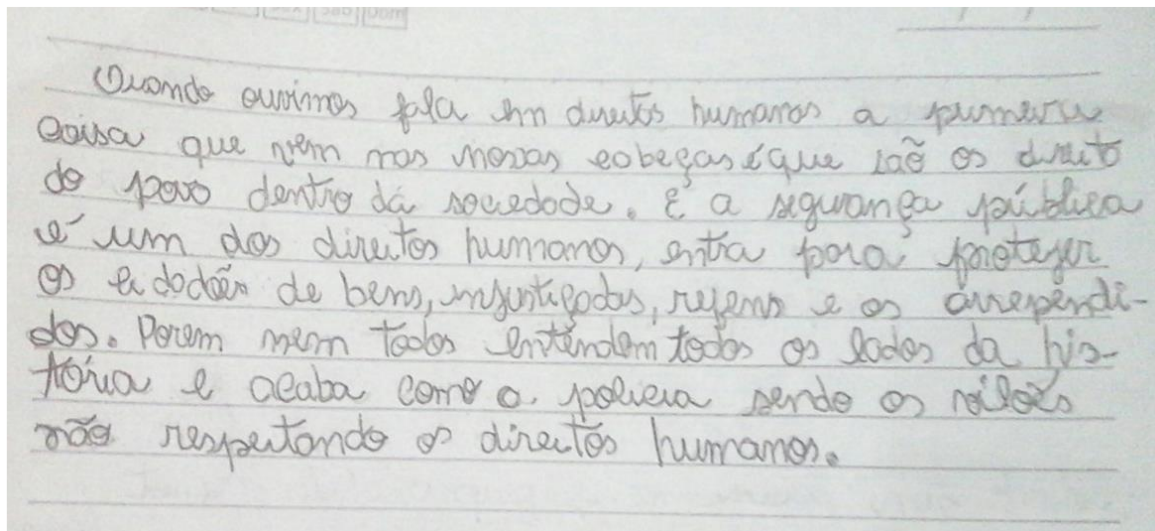 Quando ouvimos fala em direitos humanos a primeira
coisa que vêm nas nossas cabeças é que são os direito
do povo dentro da sociedade. É a segurança pública
é um dos direitos humanos, entra para proteger
os cidadões de bens, injustiçados, reféns e os arrependi-
dos. Porem nem todos entendem todos os lados da his-
tória e acaba como a policia sendo os vilões
não respeitando os direitos humanos.